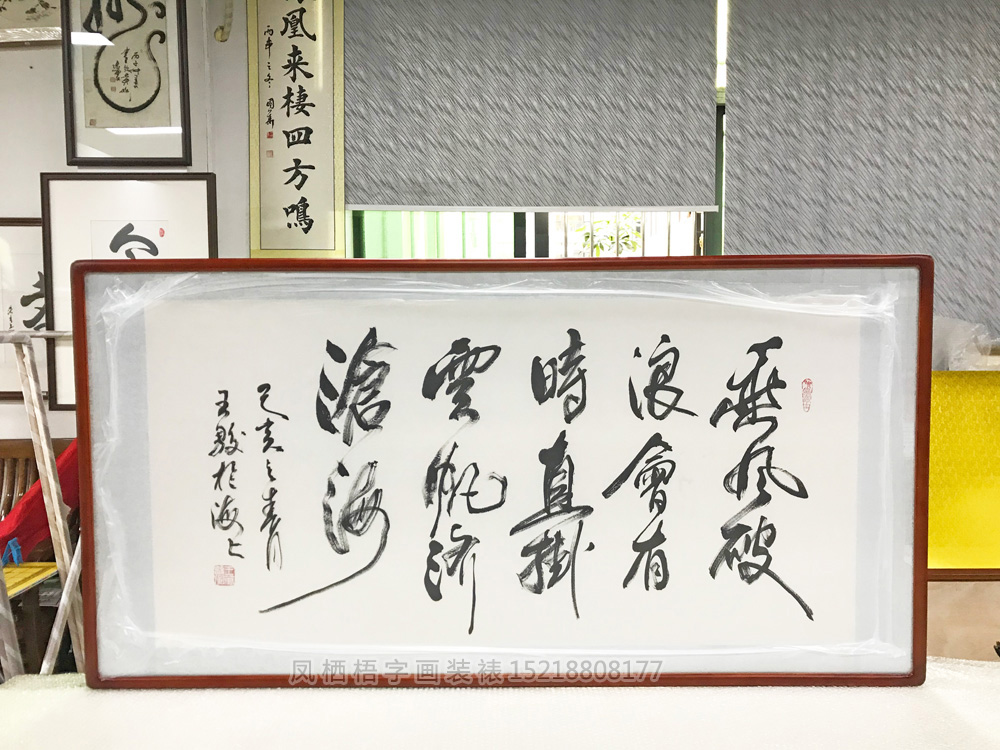 乘風破
浪會有
時直掛
雲帆濟
滄海
己亥之春月
王駿於海上
凰来棲四方鳴
丙申之冬
凤栖梧字画装裱15218808177